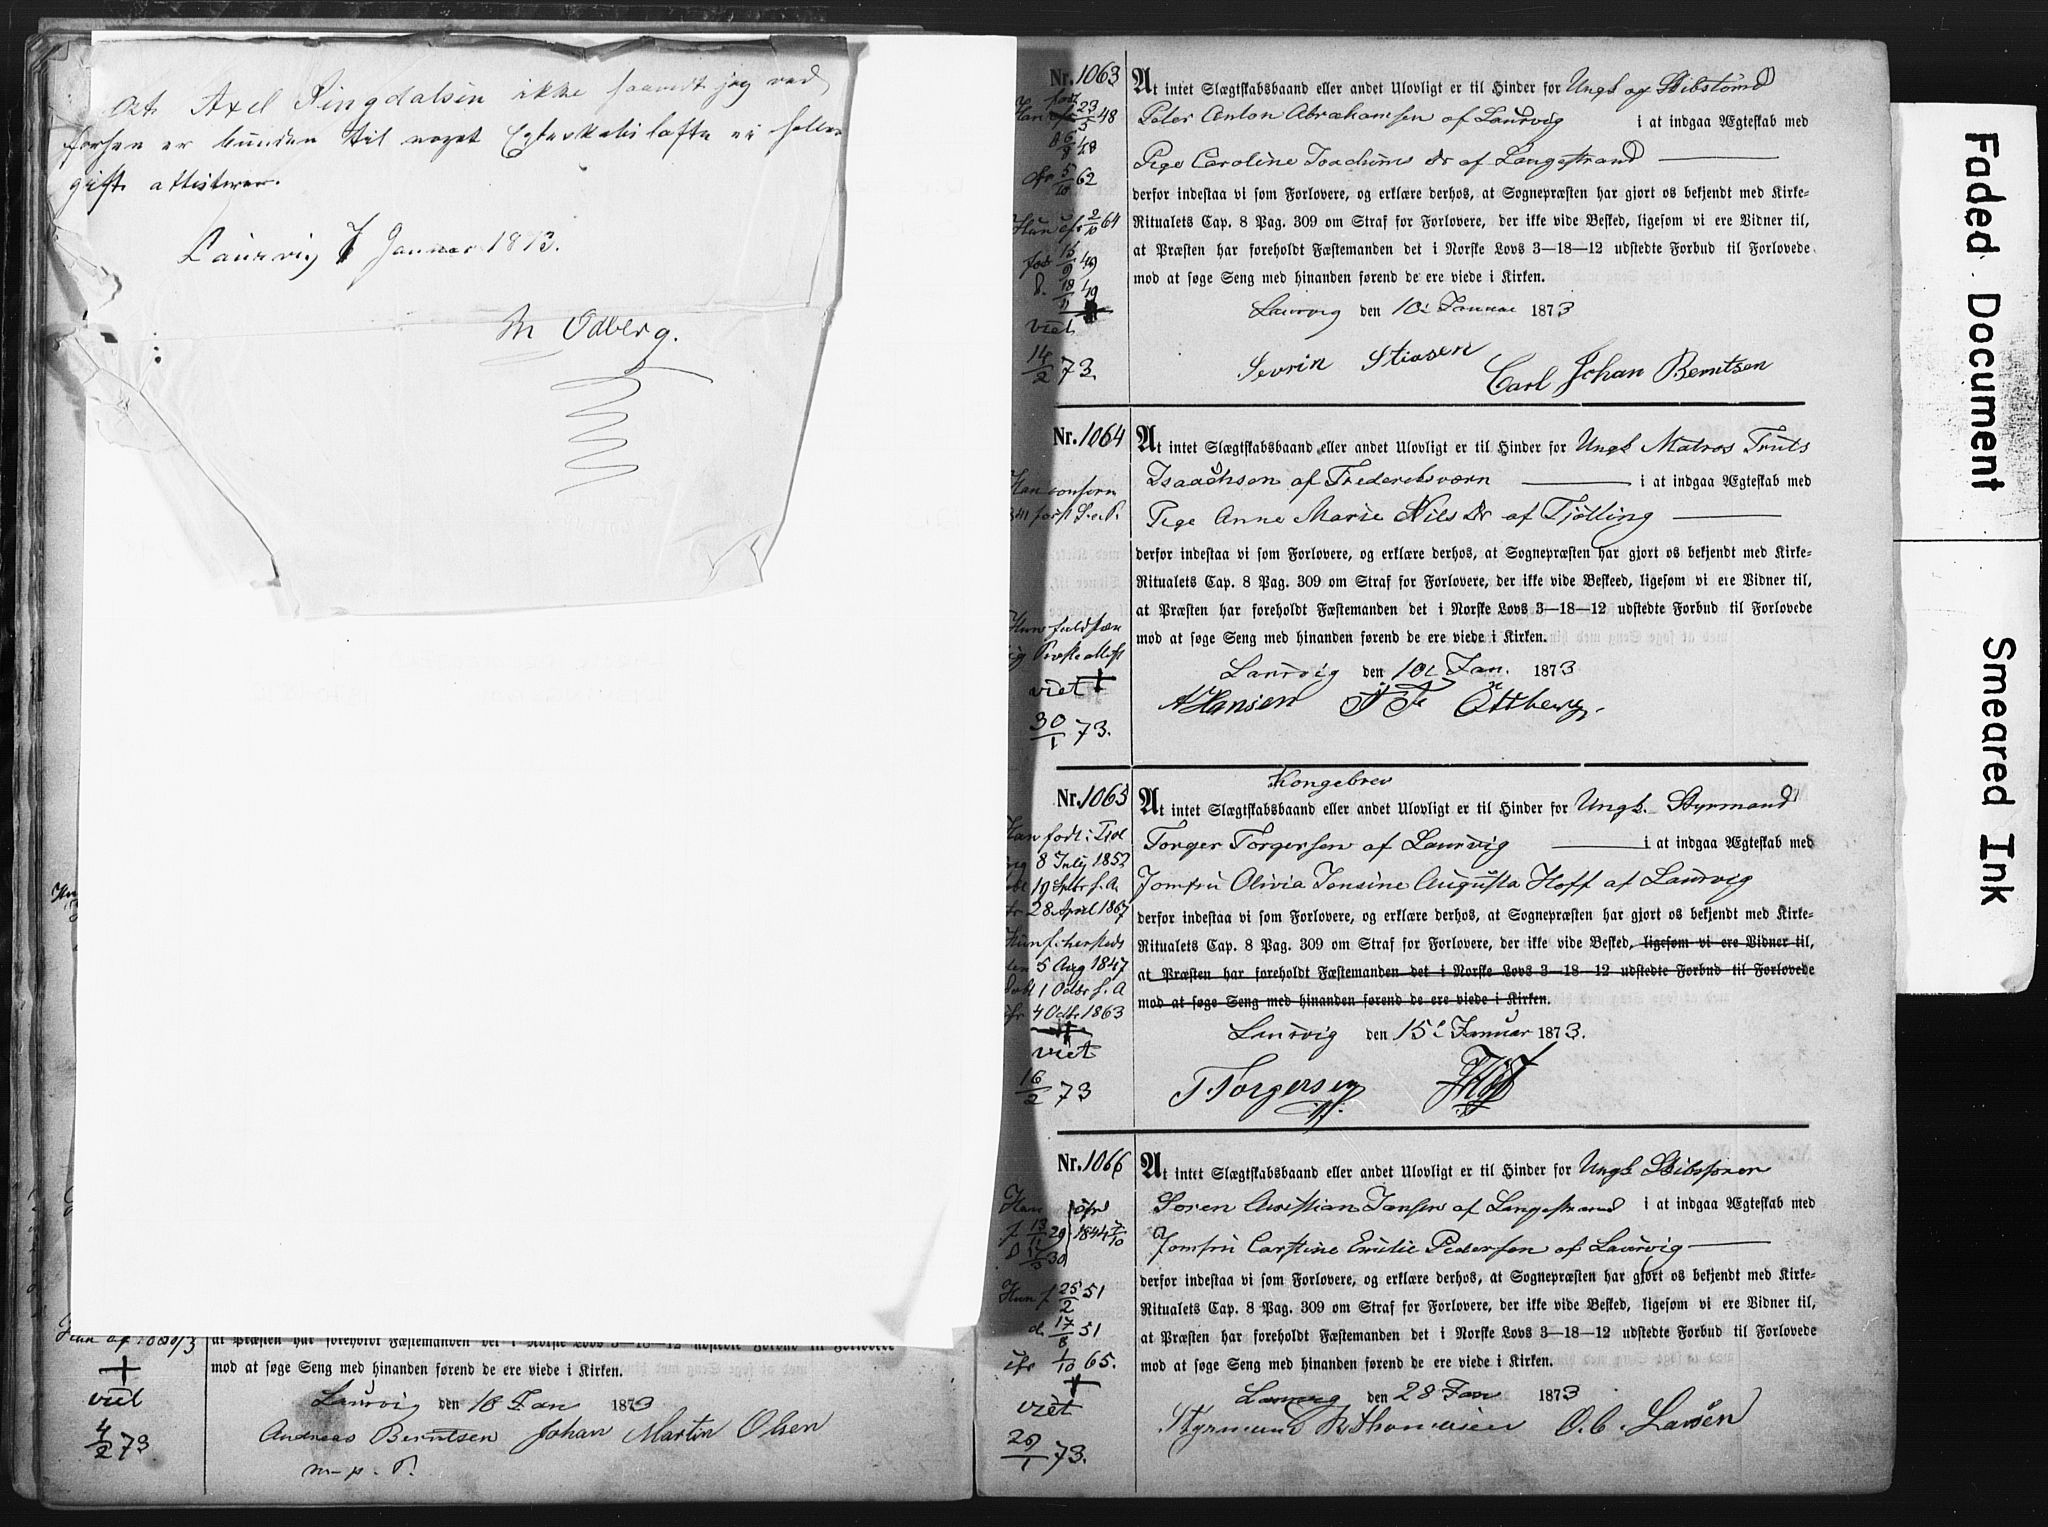 At Axel Ringdalsen ikke saavidt jeg ved
forhen er bunden til noget Egteskabsløfte ei heller
gift attesterer.
Laurvig 7 Januar 1873.
M Ødberg.
at Præsten har foreholdt Fæstemanden det i Norske Lovs 3—18—12 udstedte Forbud til Forlovede
mod at søge Seng med hinanden førend de ere viede i Kirken.
viet
4/2 73
Laurvig den 18 Jan 1873
Andreas Berntsen Johan Martin Olsen
m. p. P.
Nr. 1063
At intet Slægtskabsbaand eller andet Ulovligt er til Hinder for Ungk og Skibstømd
Peter Anton Abrahamsen af Laurvig i at indgaa Ægteskab med
Pige Caroline Joachims Dr af Langestrand
derfor indestaa vi som Forlovere, og erklære derhos, at Sognepræsten har gjort os bekjendt med Kirke-
Ritualets Cap. 8 Pag. 309 om Straf for Forlovere, der ikke vide Besked, ligesom vi ere Vidner til,
at Præsten har foreholdt Fæstemanden det i Norske Lovs 3—18—12 udstedte Forbud til Forlovede
mod at søge Seng med hinanden førend de ere viede i Kirken.
Laurvig den 10. Januar 1873
Sevrin Stiasen Carl Johan Berntsen
født
Han 23/5 48
6/8 48
cfr 5/10 62
Hun cfr 2/10 64
født 15/9 49
d. 18/11 49
viet
14/2 73.
Nr. 1064
At intet Slægtskabsbaand eller andet Ulovligt er til Hinder for Ungk Matros Truls
Isaachsen af Frederiksværn i at indgaa Ægteskab med
Pige Anne Marie Nils Dr af Tjølling
derfor indestaa vi som Forlovere, og erklære derhos, at Sognepræsten har gjort os bekjendt med Kirke-
Ritualets Cap. 8 Pag. 309 om Straf for Forlovere, der ikke vide Beskeed, ligesom vi ere Vidner til,
at Præsten har foreholdt Fæstemanden det i Norske Lovs 3—18—12 udstedte Forbud til Forlovede
mod at søge Seng med hinanden førend de ere viede i Kirken.
Laurvig den 10. Jan. 1873
A Hansen Ottberg.
Han conferer
viet
30/1 73.
Kongebrev
Nr. 1065
At intet Slægtskabsbaand eller andet Ulovligt er til Hinder for Ungk. Styrmand
Torger Torgersen af Laurvig i at indgaa Ægteskab med
Jomfru Olivia Jensine Augusta Hoff af Laurvig
derfor indestaa vi som Forlovere, og erklære derhos, at Sognepræsten har gjort os bekjendt med Kirke-
Ritualets Cap. 8 Pag. 309 om Straf for Forlovere, der ikke vide Besked, ligesom vi ere Vidner til,
at Præsten har foreholdt Fæstemanden det i Norske Lovs 3—18—12 udstedte Forbud til Forlovede
mod at søge Seng med hinanden førend de ere viede i Kirken.
Laurvig den 15. Januar 1873.
T Torgersen Hoff
Han født i Tjøl
8 July 1852
19 Septbr s. A.
28 April 1867
Hun f. hersteds
den 5 Aug 1847
døbt 1 Octbr s. A
cfr 4 Octbr 1863
viet
16/2 73
Nr. 1066
At intet Slægtskabsbaand eller andet Ulovligt er til Hinder for Ungk. Skibsfører
Søren Christian Jansen af Langestrand i at indgaa Ægteskab med
Jomfru Carstine Emilie Pedersen af Laurvig
derfor indestaa vi som Forlovere, og erklære derhos, at Sognepræsten har gjort os bekjendt med Kirke-
Ritualets Cap. 8 Pag. 309 om Straf for Forlovere, der ikke vide Besked, ligesom vi ere Vidner til,
at Præsten har foreholdt Fæstemanden det i Norske Lovs 3—18—12 udstedte Forbud til Forlovede
mod at søge Seng med hinanden førend de ere viede i Kirken.
Laurvig den 28 Jan 1873
Styrmand Thomassen O. C. Larsen
Han cfr
f 13/11 29 1844 7/10
D 17/3 30
Hun f 25/2 51
d. 17/8 51
cfr 1/10 65.
viet
29/1 73.
Faded Document
Smeared Ink